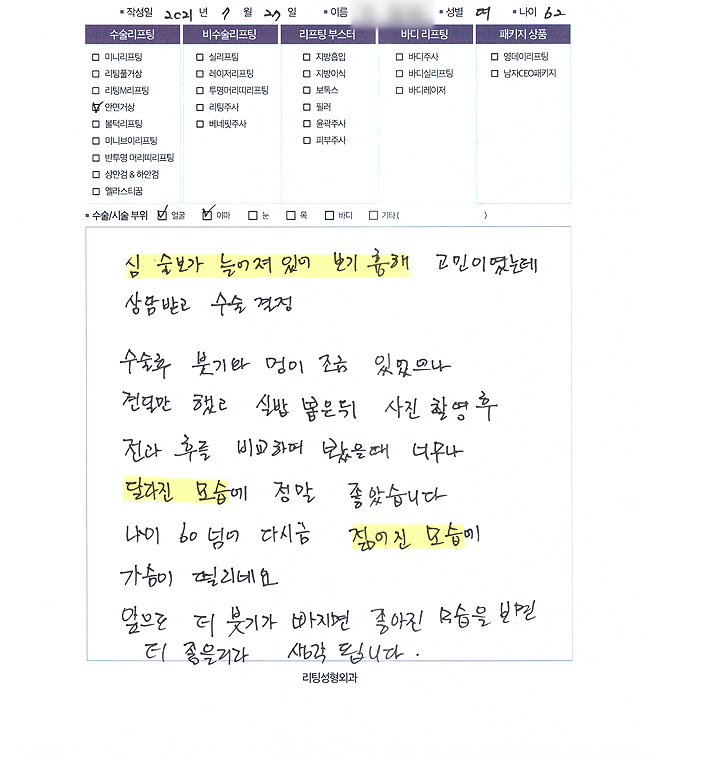 작성일 2021 년 7 월 27 일 이름 성별 여 나이 62
수술리프팅 비수술리프팅 리프팅 부스터 바디 리프팅 패키지 상품
미니리프팅 실리프팅 지방흡입 바디주사 영데이리프팅
리팅풀거상 레이저리프팅 지방이식 바디실리프팅 남자CEO패키지
리팅M리프팅 투명머리띠리프팅 보톡스 바디레이저
안면거상 리팅주사 필러
볼턱리프팅 베네핏주사 윤곽주사
미니브이리프팅 피부주사
반투명 머리띠리프팅
상안검 & 하안검
엘라스티꿈
수술/시술 부위 얼굴 이마 눈 목 바디 기타( )
심술보가 늘어져 있어 보기 흉해 고민이였는데
상담받고 수술 결정
수술후 붓기와 멍이 조금 있었으나
견딜만 했고 실밥 뽑은뒤 사진 촬영 후
전과 후를 비교하며 봤을때 너무나
달라진 모습에 정말 좋았습니다
나이 60 넘어 다시금 젊어진 모습에
가슴이 떨리네요
앞으로 더 붓기가 빠지면 좋아진 모습을 보면
더 좋을리라 생각 됩니다.
리팅성형외과